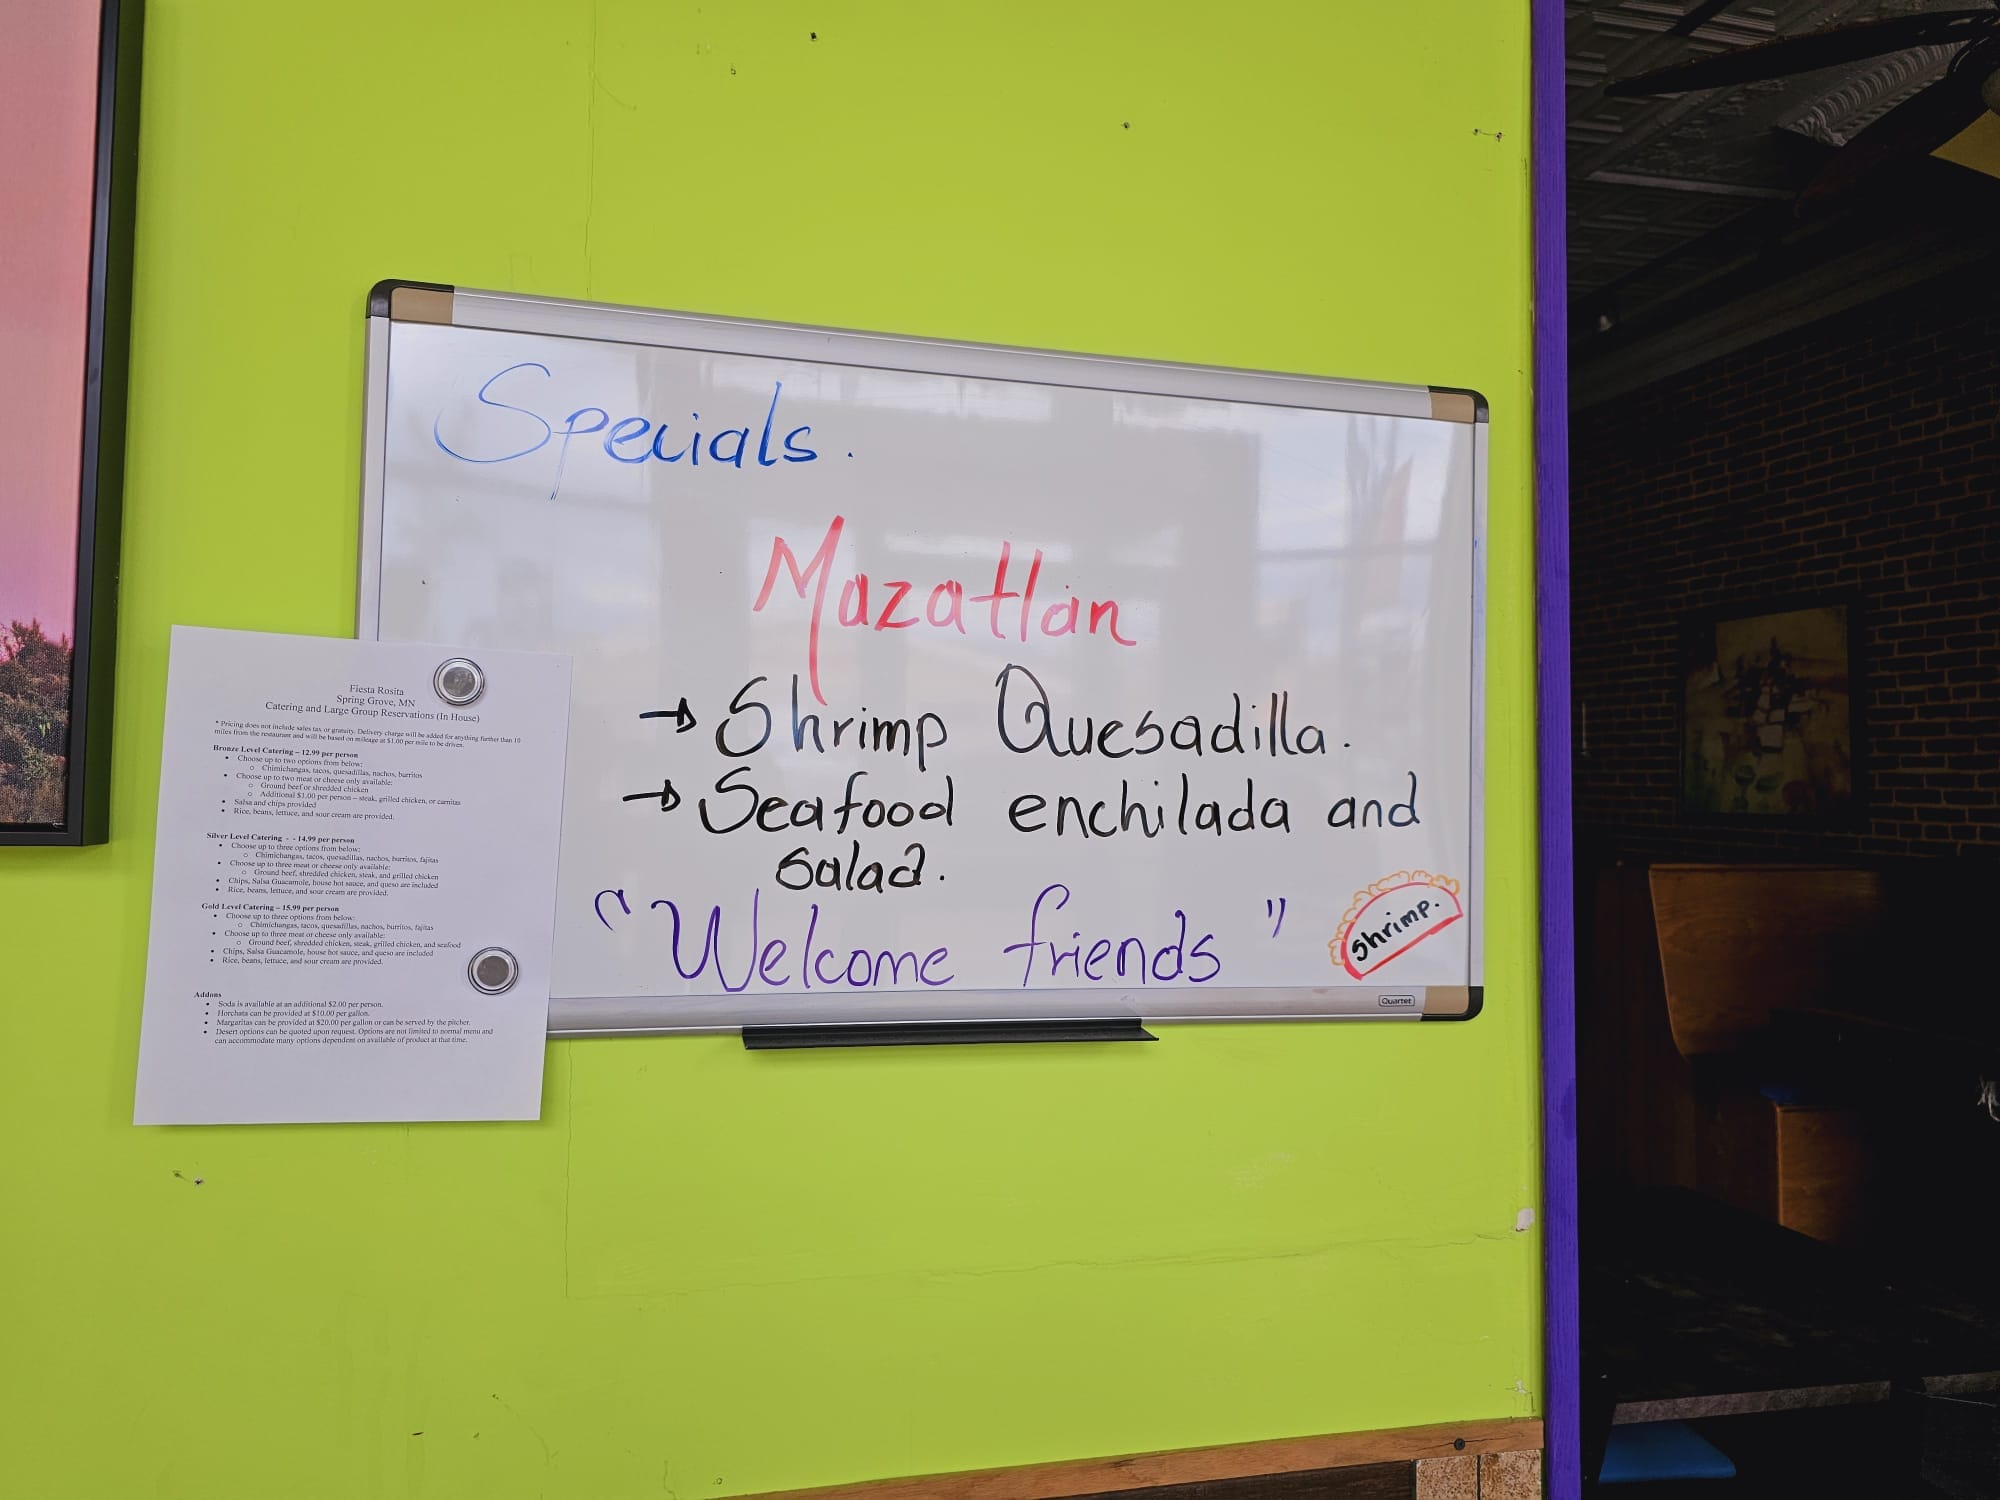 Specials.
Mazatlán
→ Shrimp Quesadilla.
→ Seafood enchilada and
salad.
"Welcome friends"
shrimp.
Quartet
Fiesta Rosita
Spring Grove, MN
Catering and Large Group Reservations (In House)
* Pricing does not include sales tax or gratuity. Delivery charge will be added for anything further than 10
miles from the restaurant and will be based on mileage at $1.00 per mile to be driven.
Bronze Level Catering – 12.99 per person
• Choose up to two options from below:
o Chimichangas, tacos, quesadillas, nachos, burritos
• Choose up to two meat or cheese only available:
o Ground beef or shredded chicken
o Additional $1.00 per person – steak, grilled chicken, or carnitas
• Salsa and chips provided
• Rice, beans, lettuce, and sour cream are provided.
Silver Level Catering - - 14.99 per person
• Choose up to three options from below:
o Chimichangas, tacos, quesadillas, nachos, burritos, fajitas
• Choose up to three meat or cheese only available:
o Ground beef, shredded chicken, steak, and grilled chicken
• Chips, Salsa Guacamole, house hot sauce, and queso are included
• Rice, beans, lettuce, and sour cream are provided.
Gold Level Catering – 15.99 per person
• Choose up to three options from below:
o Chimichangas, tacos, quesadillas, nachos, burritos, fajitas
• Choose up to three meat or cheese only available:
o Ground beef, shredded chicken, steak, grilled chicken, and seafood
• Chips, Salsa Guacamole, house hot sauce, and queso are included
• Rice, beans, lettuce, and sour cream are provided.
Addons
• Soda is available at an additional $2.00 per person.
• Horchata can be provided at $10.00 per gallon.
• Margaritas can be provided at $20.00 per gallon or can be served by the pitcher.
• Desert options can be quoted upon request. Options are not limited to normal menu and
can accommodate many options dependent on available of product at that time.